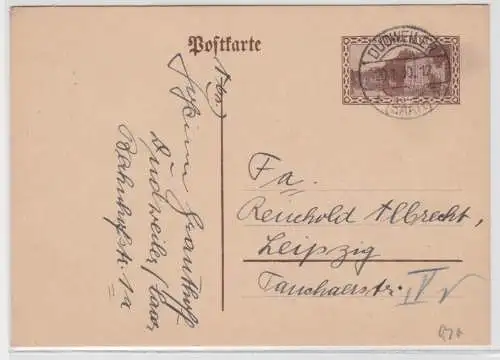 Postkarte
DUDWEILER
(SAAR)
Abs.
Dudweiler/Saar
Bahnhofstr. 1a
Fa.
Reinhold Albrecht,
Leipzig
Tauchaerstr.
IV